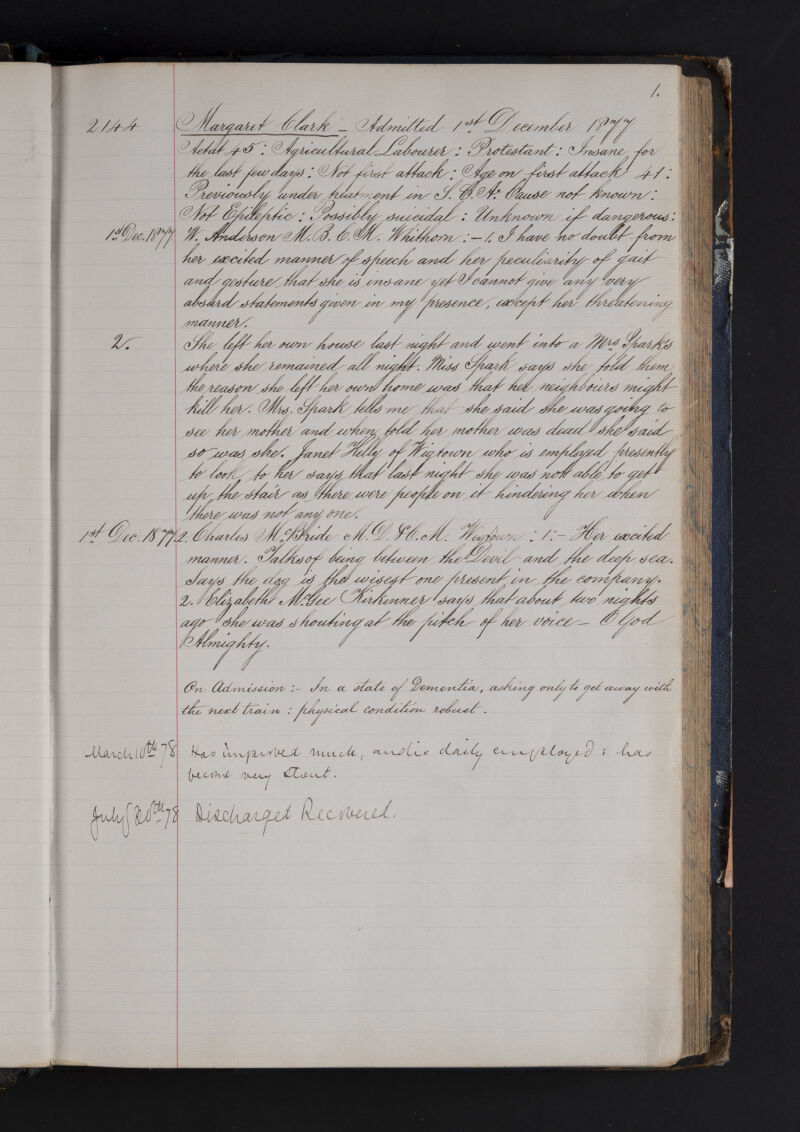 1.
2144 Margaret Clark - Admitted 1st December 1877
Aetat 45 : Agricultural Labourer : Protestant : Insane for
the last few days : Not first attack : Age on first attack 41 :
Previously under treatment in S. C. A. Cause not known :
Not Epileptic : Possibly suicidal : Unknown if dangerous :
1st Dec. 1877 W. Anderson M. B. C. M. Whithorn : - 1. I have no doubt from
her excited manner of speech and her peculiarity of gait
and gesture, that she is insane yet I cannot give any very
absurd statements given in my presence, except her threatening
manner.
2. She left her own house last night and went into a Mrs Spark's
where she remained all night. Miss Spark says she told them
the reason she left her own home was that her neighbours might
kill her. Mrs. Spark tells me that she said she was going to
see her mother and when told her mother was dead she said
so was she. Janet Helly of Wigtown who is employed presently
to look to her says that last night she was not able to get
up the stair as there were people on it hindering her when
there was not any one.
1st Dec. 1877 2. Charles McBride M. D. & C. M. Wigtown : 1 : - Her excited
manner. Talks of being between the Devil and the deep sea.
Says the dog is the wisest one present in the company.
2. Elizabeth McGee Kirkinner says that about two nights
ago she was shouting at the pitch of her voice - O God
Almighty.
On Admission :- In a state of Dementia, asking only to get away with
the next train : physical condition robust.
March 10th 78 Has improved much, and is daily employed : has
become very stout.
July 20th 78 Discharged Recovered.